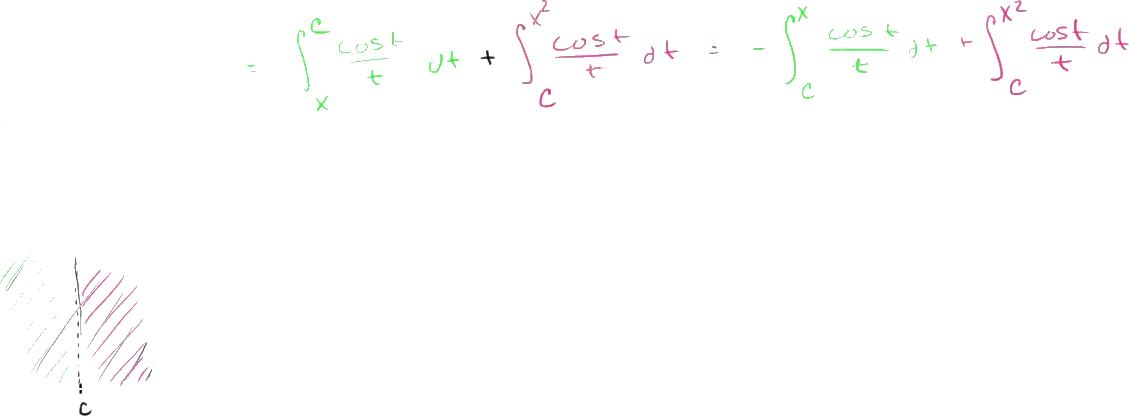 = ∫_x^c cost/t dt + ∫_c^x² cost/t dt = - ∫_c^x cost/t dt + ∫_c^x² cost/t dt
c